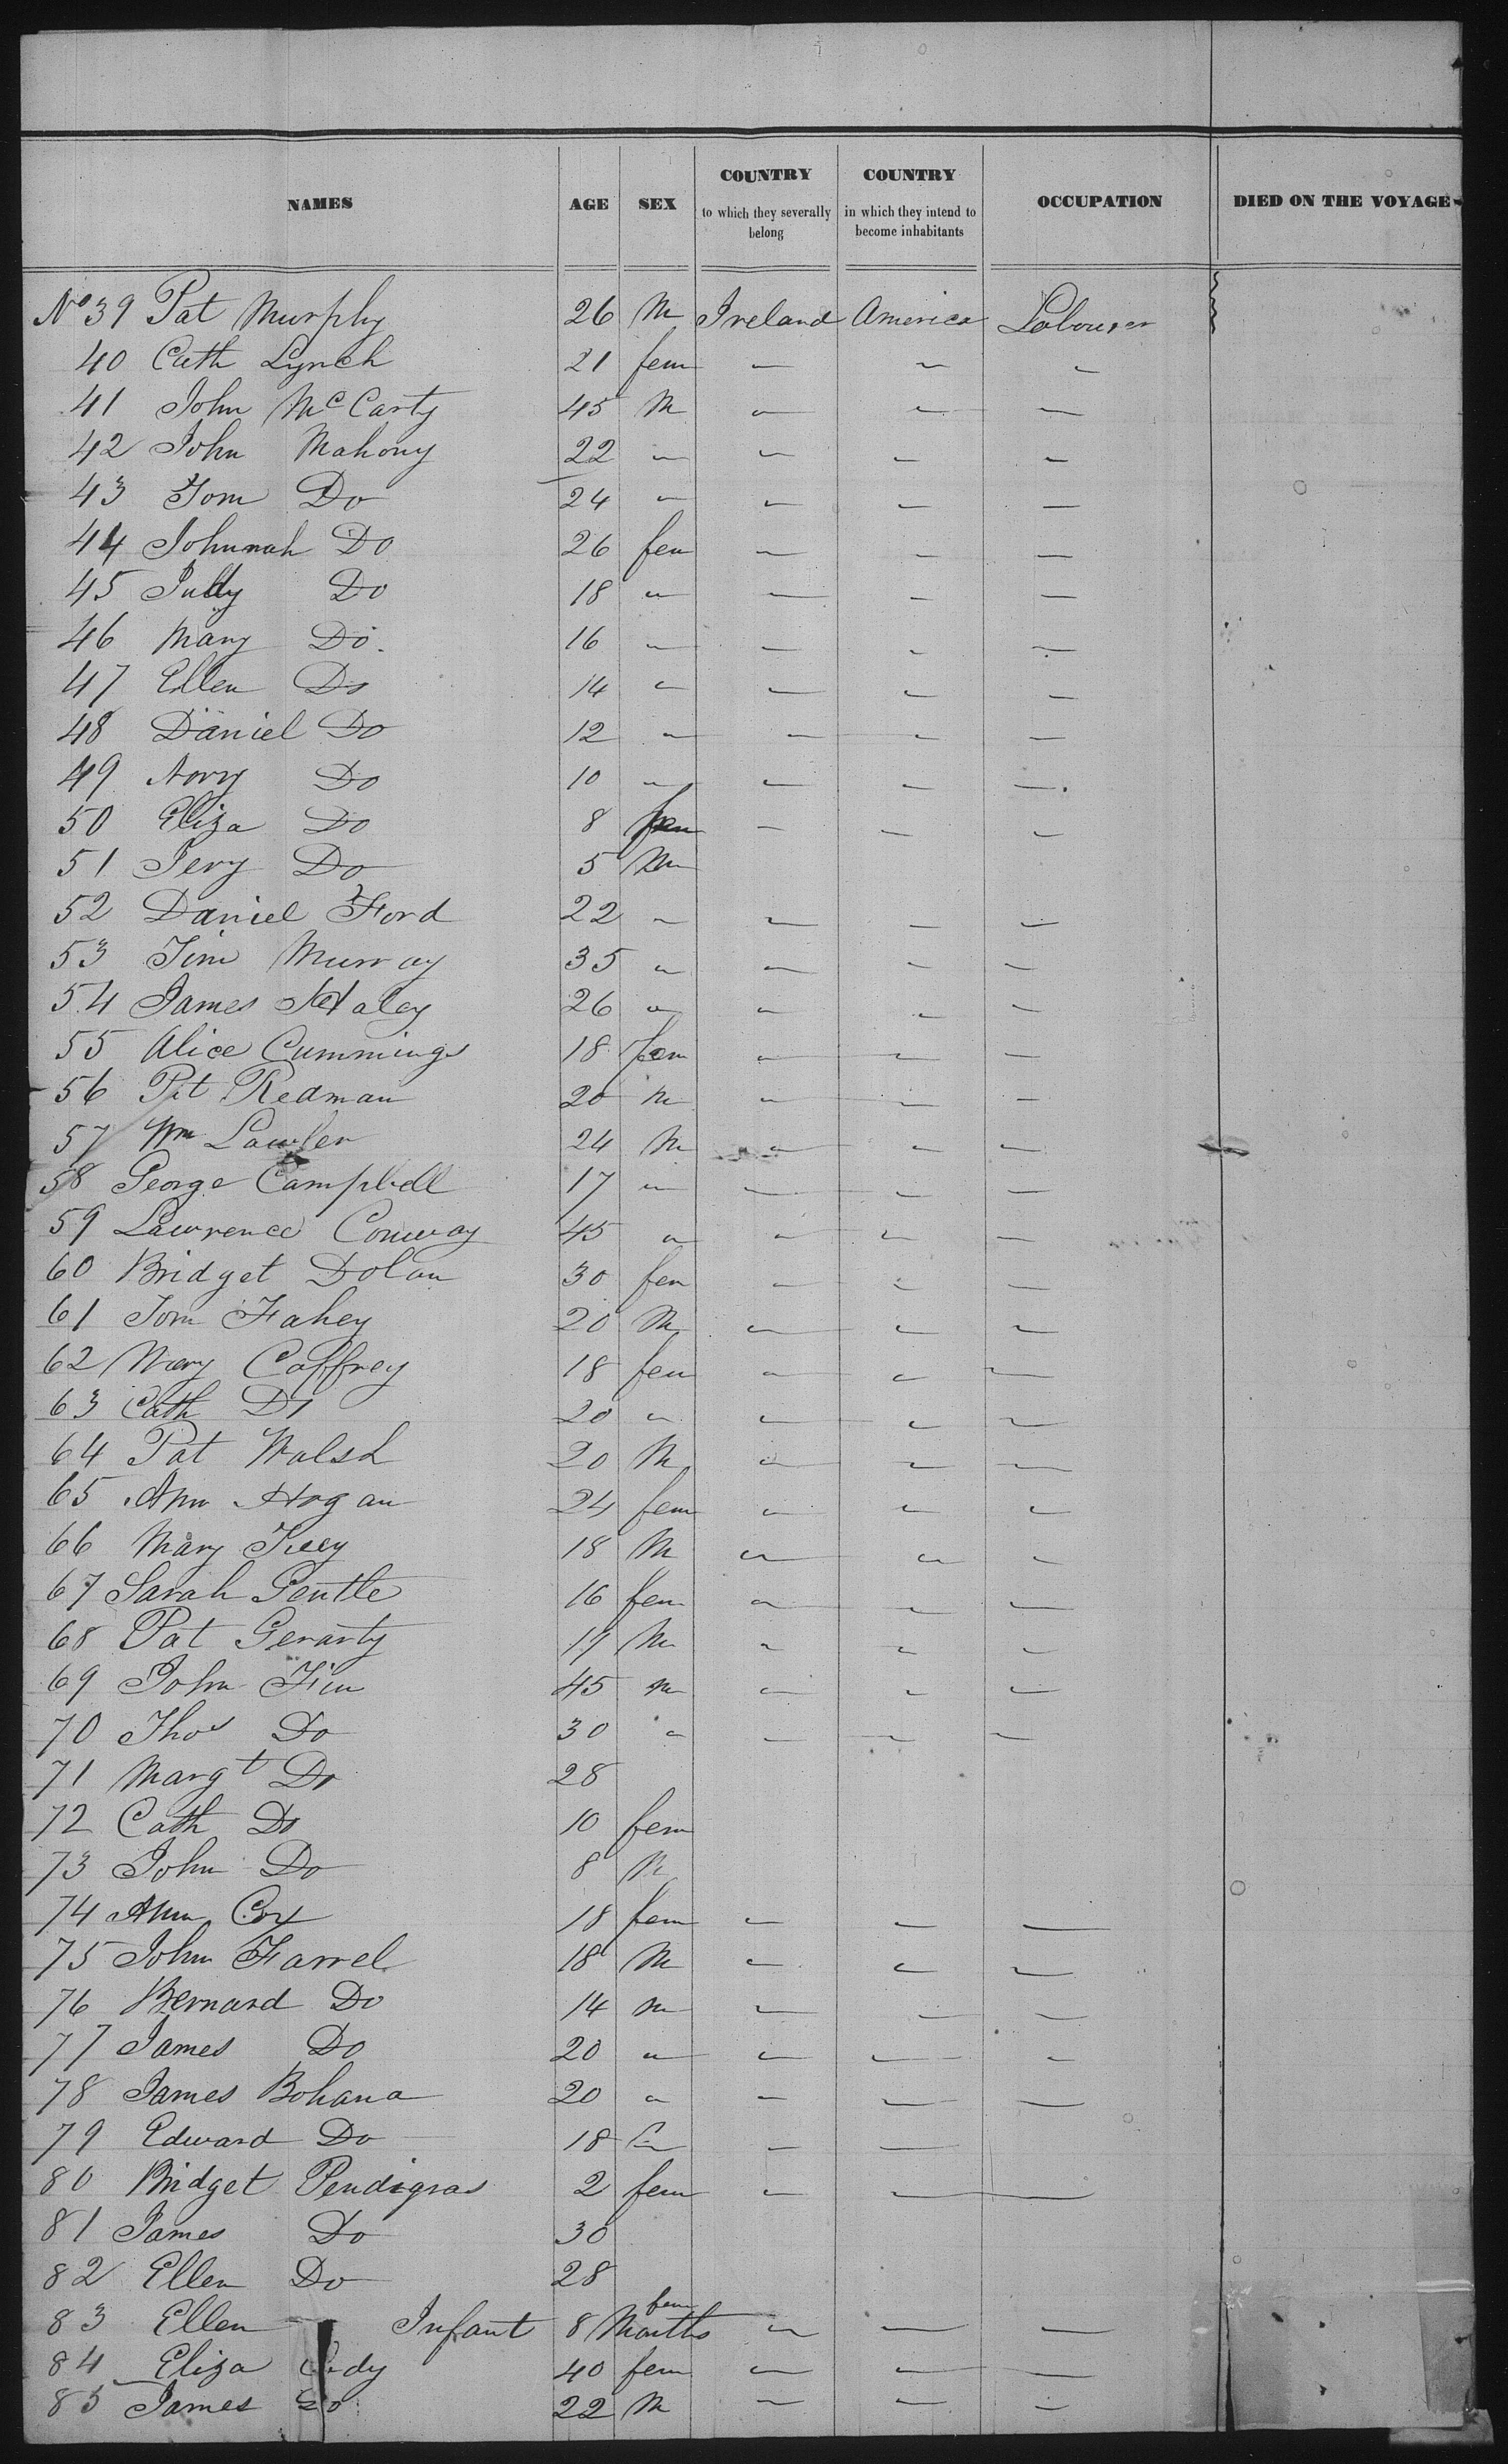 NAMES AGE SEX COUNTRY to which they severally belong COUNTRY in which they intend to become inhabitants OCCUPATION DIED ON THE VOYAGE
No 39 Pat Murphy 26 M Ireland America Labourer
40 Cath Lynch 21 fem " " "
41 John McCarty 45 M " " "
42 John Mahony 22 " " " "
43 Tom Do 24 " " " "
44 Johannah Do 26 fem " " "
45 Judy Do 18 " " " "
46 Mary Do 16 " " " "
47 Ellen Do 14 " " " "
48 Daniel Do 12 " " " "
49 Norry Do 10 " " " "
50 Eliza Do 8 fem " " "
51 Jery Do 5 M
52 Daniel Ford 22 " " " "
53 Tim Murray 35 " " " "
54 James Haley 26 " " " "
55 Alice Cummings 18 fem " " "
56 Pat Redman 20 M " " "
57 Wm Lawler 24 M " " "
58 George Campbell 17 " " " "
59 Lawrence Conway 45 " " " "
60 Bridget Dolan 30 fem " " "
61 Tom Fahey 20 M " " "
62 Mary Caffrey 18 fem " " "
63 Cath Do 20 " " " "
64 Pat Walsh 20 M " " "
65 Ann Hogan 24 fem " " "
66 Mary 18 M " " "
67 Sarah Gentle 16 fem " " "
68 Pat Gerarty 17 M " " "
69 John Finn 45 M " " "
70 Thos Do 30 " " " "
71 Margt Do 28
72 Cath Do 10 fem
73 John Do 8 M
74 Ann Cox 18 fem " " "
75 John Farrel 18 M " " "
76 Bernard Do 14 M " " "
77 James Do 20 " " " "
78 James Bohana 20 " " " "
79 Edward Do 18 " " "
80 Bridget Pendigras 2 fem " " "
81 James Do 30
82 Ellen Do 28
83 Ellen Infant 8 Months fem " " "
84 Eliza 40 fem " " "
85 James Do 22 M " " "